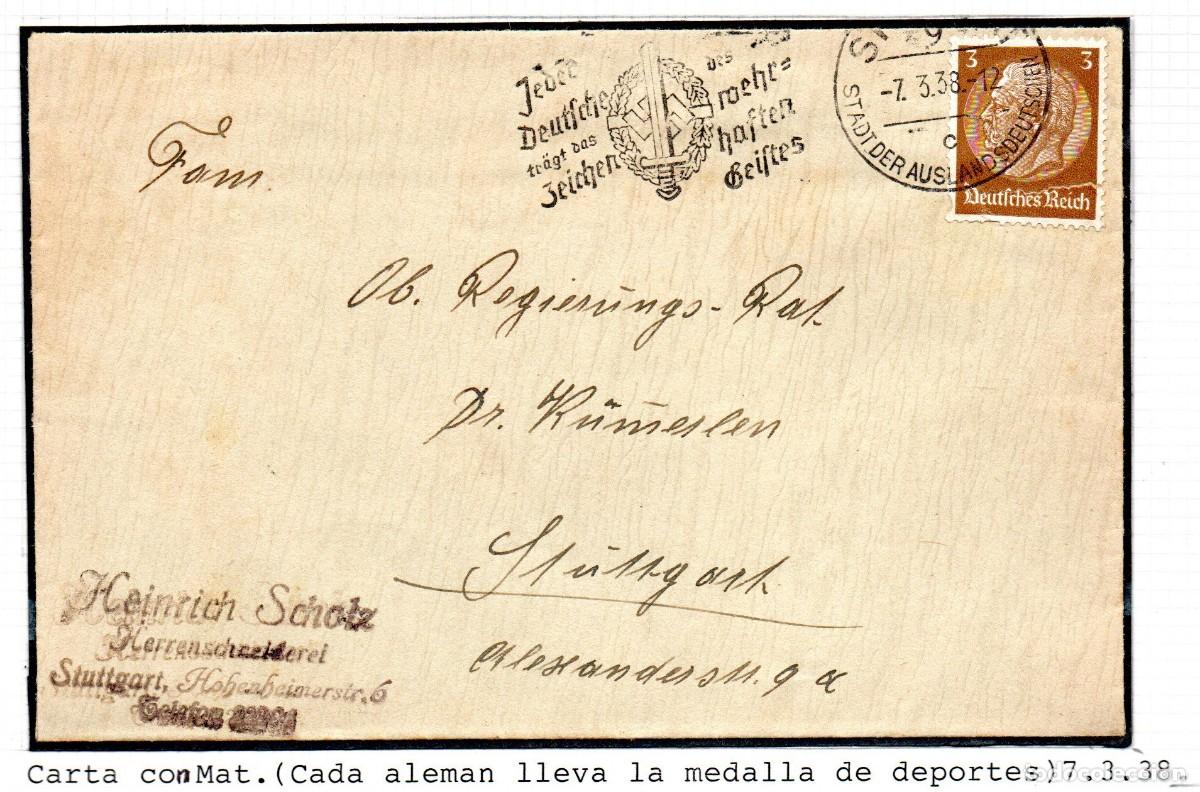 Jeder
Deutsche
trägt das
Zeichen
des
wehr=
haften
Geistes
-7.3.38.-12
c
STADT DER AUSLANDSDEUTSCHEN
3 3
Deutsches Reich
Fam.
Ob. Regierungs-Rat
Dr.
Stuttgart
Alexanderstr. 9 a
Heinrich Scholz
Herrenschneiderei
Stuttgart, Hohenheimerstr. 6
Telefon
Carta con Mat.(Cada aleman lleva la medalla de deportes)7.3.38.
todocoleccion